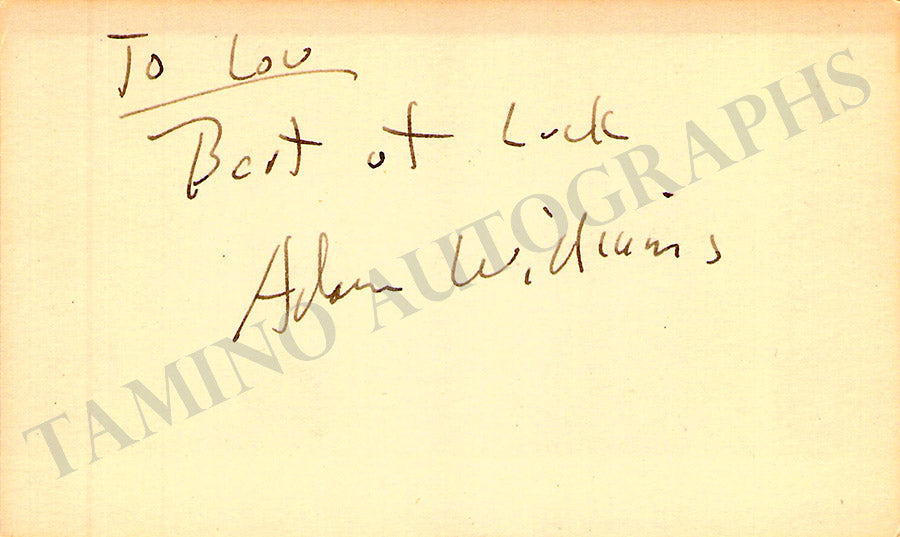 To Lou
Best of Luck
Adam Williams
TAMINO AUTOGRAPHS